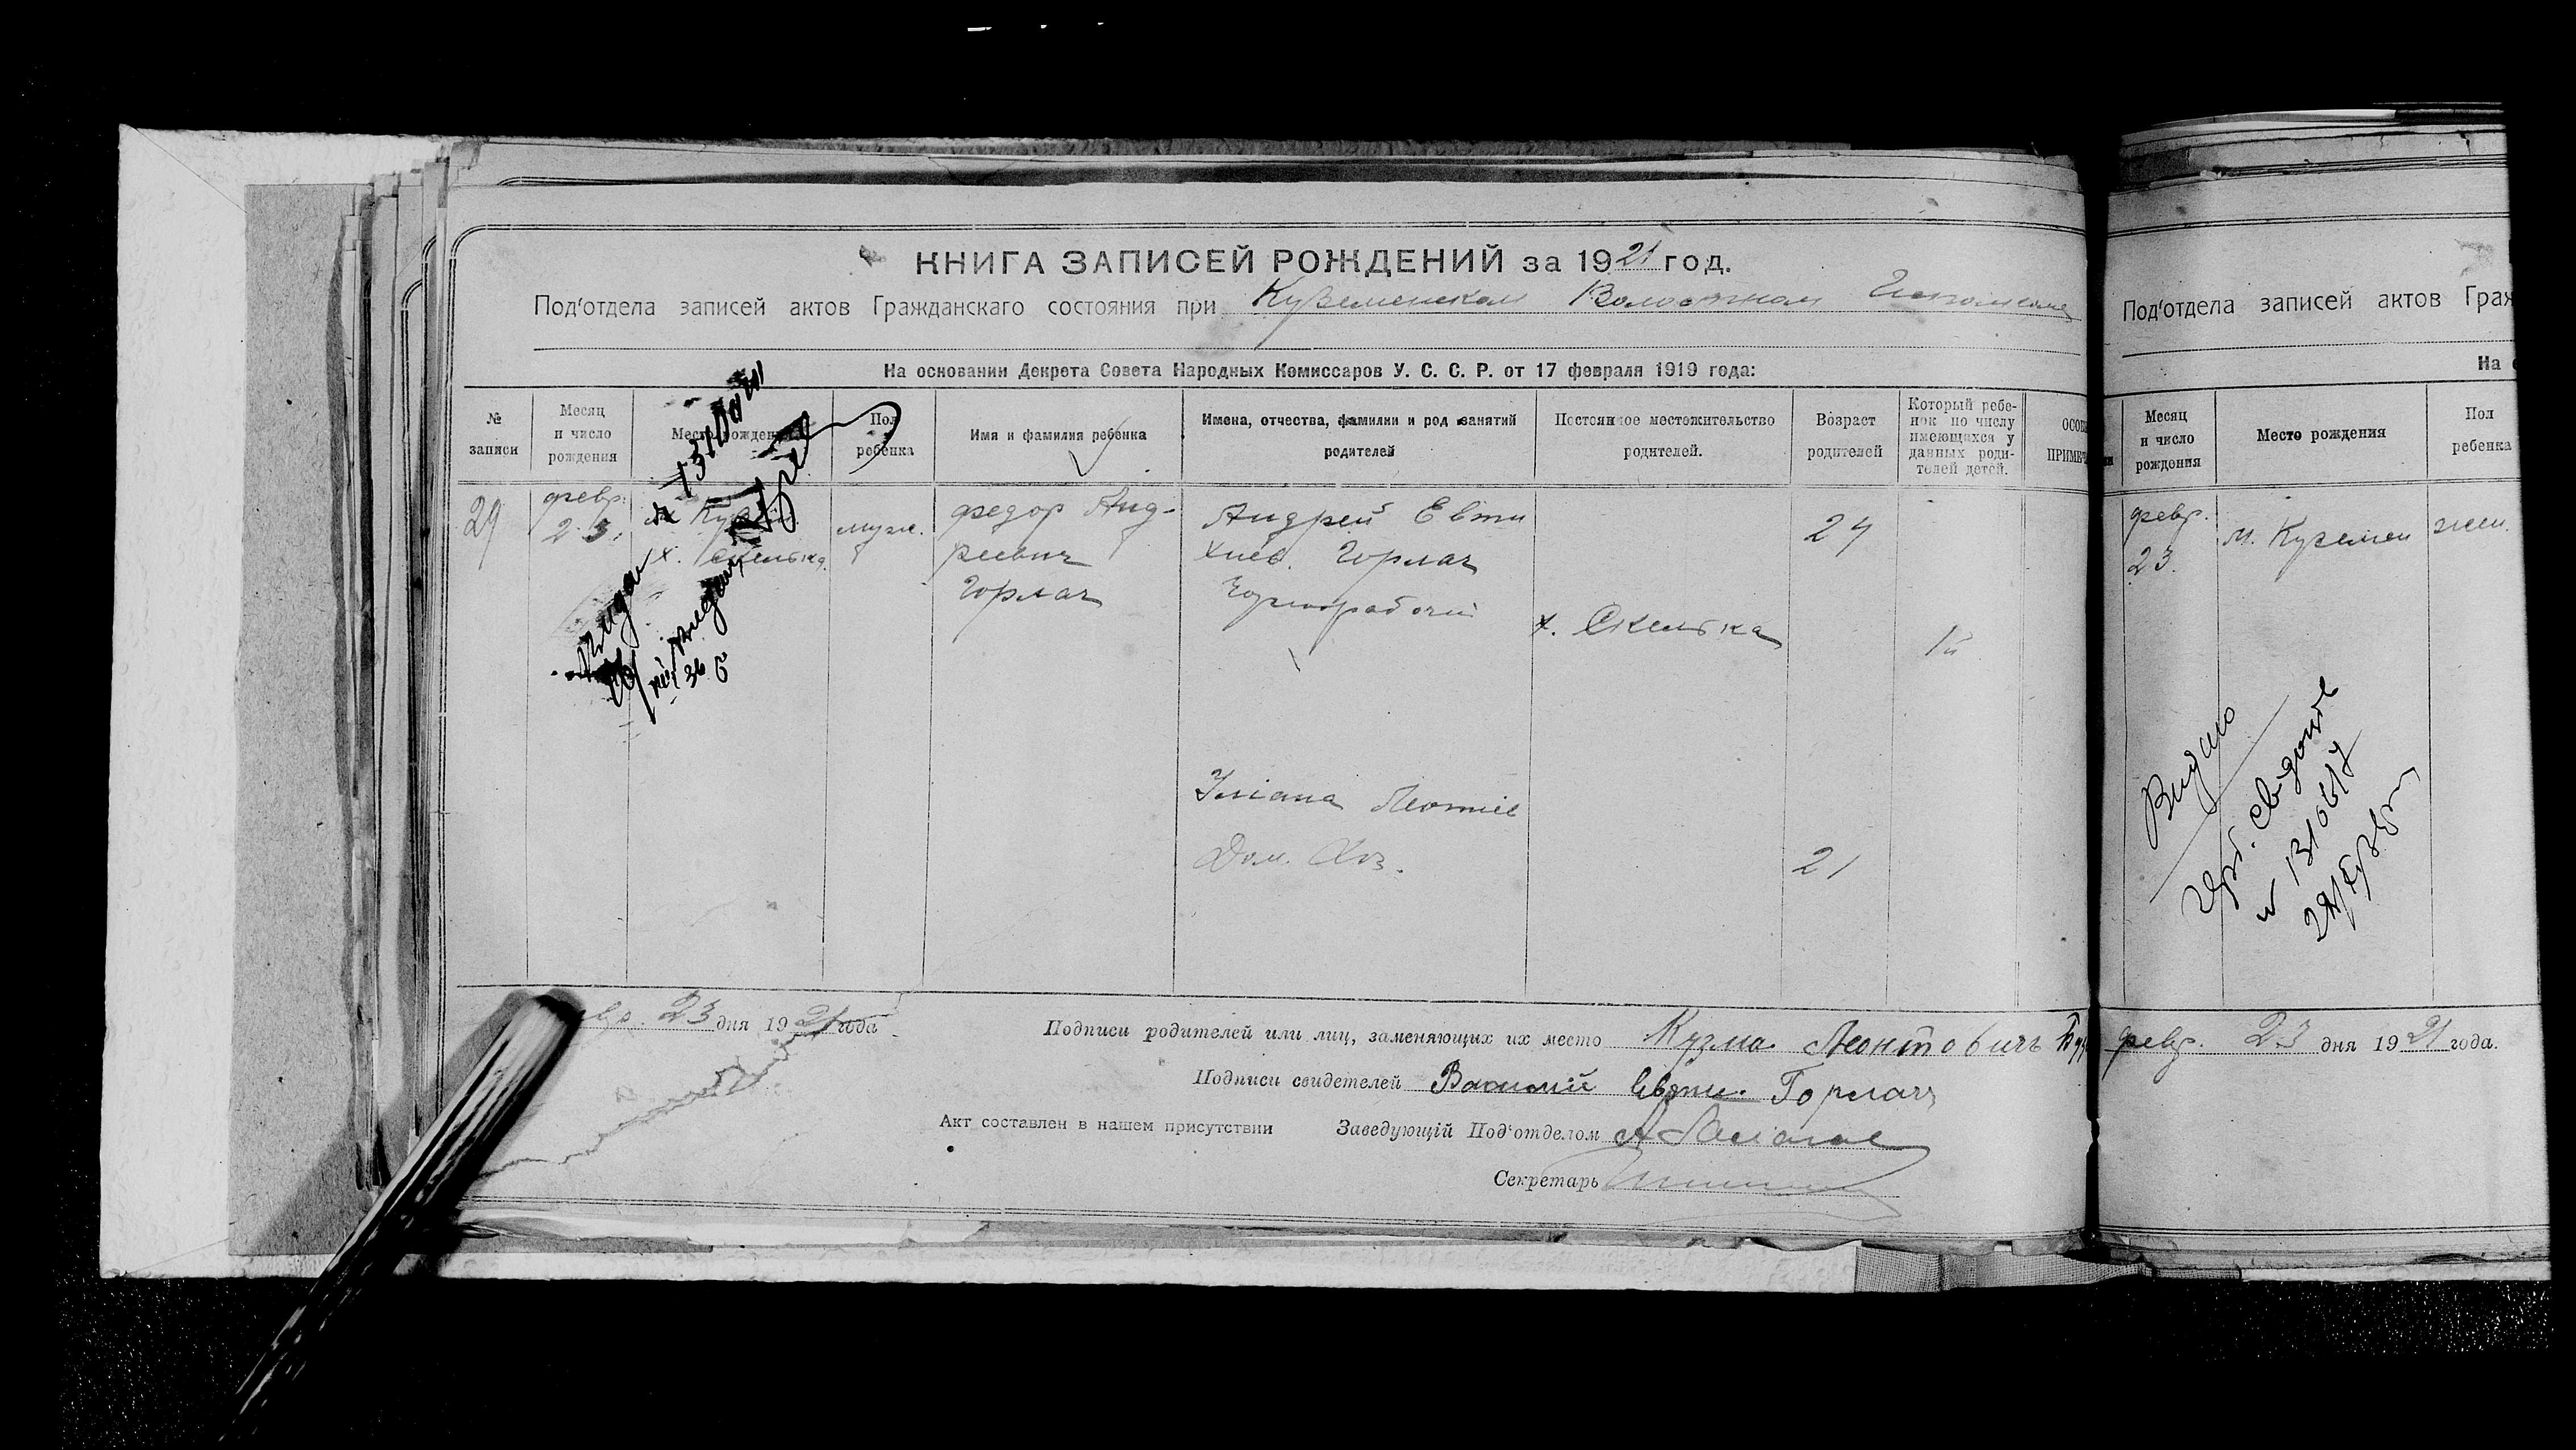 КНИГА ЗАПИСЕЙ РОЖДЕНИЙ за 1921 год.
Под‘отдела записей актов Гражданскаго состояния при Куземенском Волостном
На основании Декрета Совета Народных Комиссаров У. С. С. Р. от 17 февраля 1919 года:
№ записи
Месяц и число рождения
Место рождения
Пол ребенка
Имя и фамилия ребенка
Имена, отчества, фамилии и род занятий родителей
Постоянное местожительство родителей.
Возраст родителей
Который ребенок по числу имеющихся у данных родителей детей.
29
февр.
23.
х. Скелька
муж.
федор Анд-
реевич
Горлач
Андрей Евти
хиев. Горлач
Чорнорабочий
х. Скелька
24
1й
Улiана Леонтiев
Дом. Хоз.
21
23 дня 1921 года
Подписи родителей или лиц, заменяющих их место Кузма Леонтовичъ
Подписи свидетелей Василий Евти. Горлач
Акт составлен в нашем присутствии Заведующiй Под‘отделом
Секретарь
Под‘отдела записей актов Граж
На о
Месяц и число рождения
Место рождения
Пол ребенка
февр.
23.
м. Куземен
жен.
Видано
февр. 23 дня 1921 года.